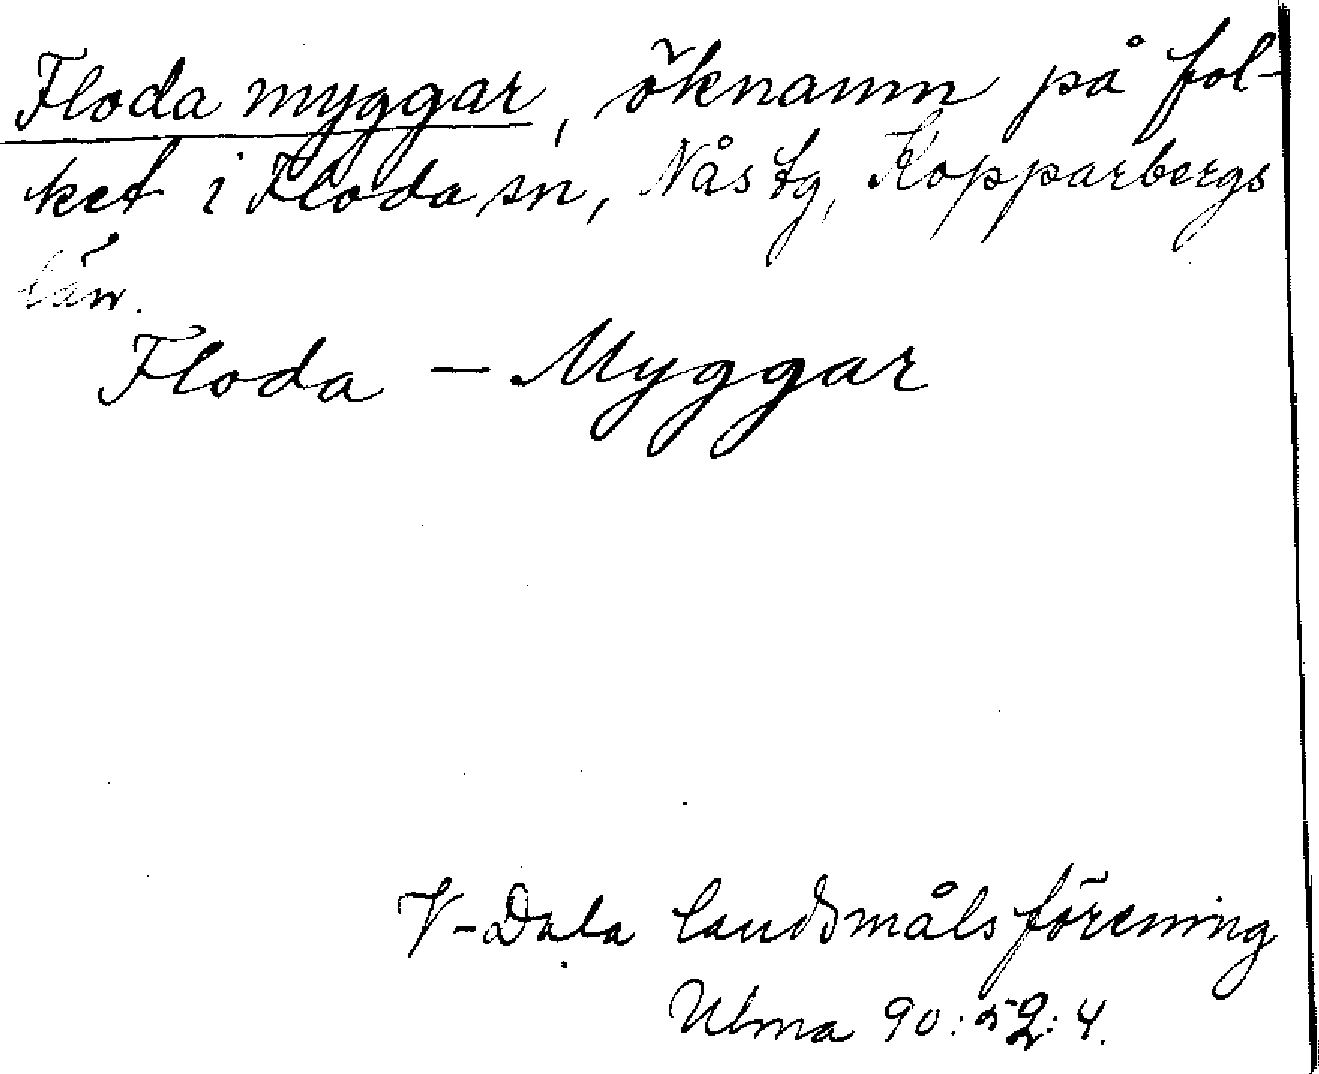 Floda myggar, öknamn på fol-
ket i Floda sn, Nås tg, Kopparbergs
län.
Floda - Myggar
V-Dala landsmålsförening
Ulma 90:52:4.